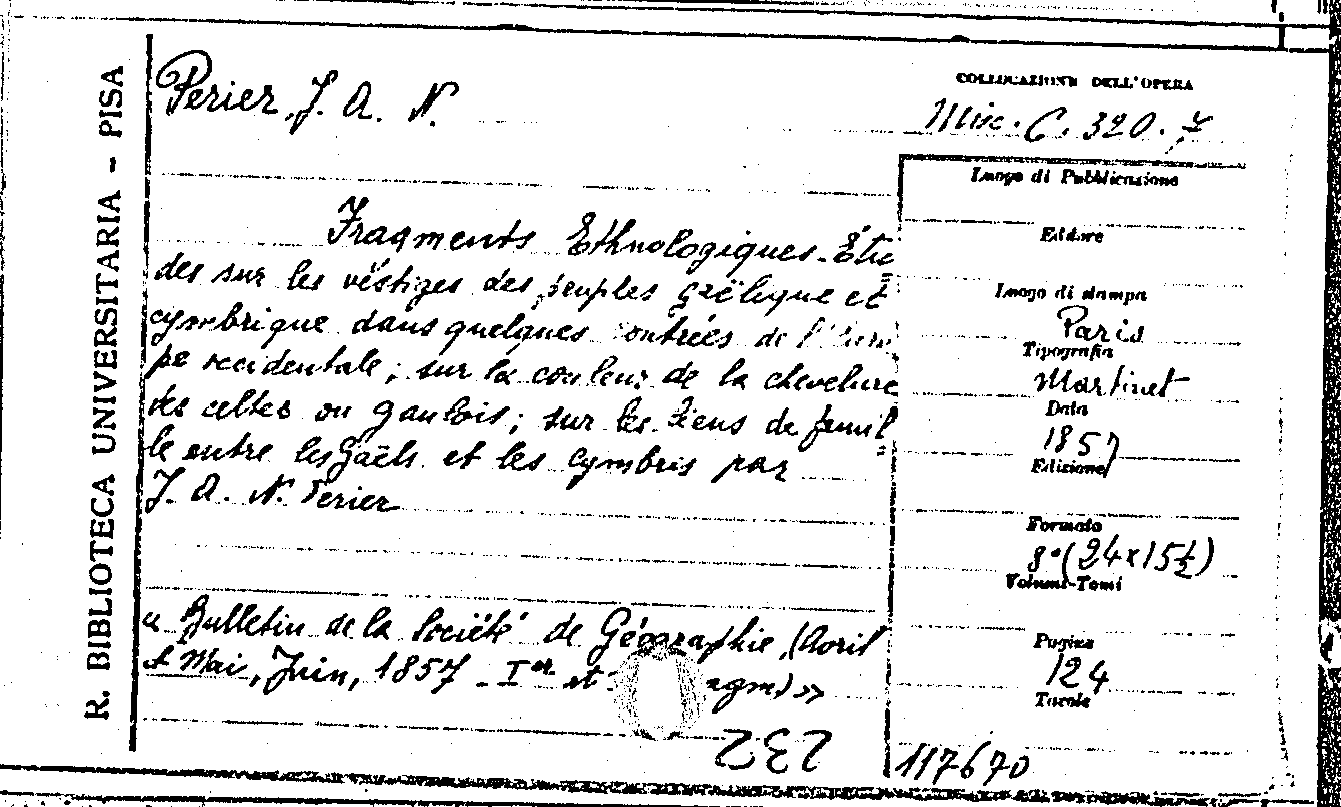 R. BIBLIOTECA UNIVERSITARIA - PISA
Perier, J. A. N.
Fragments Ethnologiques - Étu=
des sur les véstiges des peuples gaëlique et
cymbrique dans quelques contrées de
pe occidentale; sur la couleur de la chevelure
des celtes ou gaulois; sur les liens de famil=
le entre les Gaëls et les Cymbris par
J. A. N. Perier
« Bulletin de la Société de Géographie (Avril
et Mai, Juin, 1857 - Ier et
232
COLLOCAZIONE DELL'OPERA
Misc. C. 320. 7
Luogo di Pubblicazione
Editore
Luogo di stampa
Paris
Tipografia
Martinet
Data
1857
Edizione
Formato
8°(24x15½)
Volumi-Tomi
Pagine
124
Tavole
117670